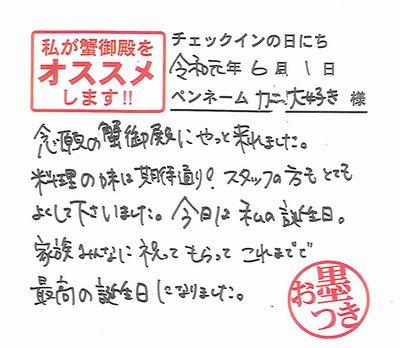 私が蟹御殿を
オススメ
します!!
チェックインの日にち
令和元年6月1日
ペンネーム カニ大好き 様
念願の蟹御殿にやっと来れました。
料理の味は期待通り!スタッフの方もとても
よくして下さいました。今日は私の誕生日。
家族みんなに祝ってもらってこれまでで
最高の誕生日になりました。
お墨つき